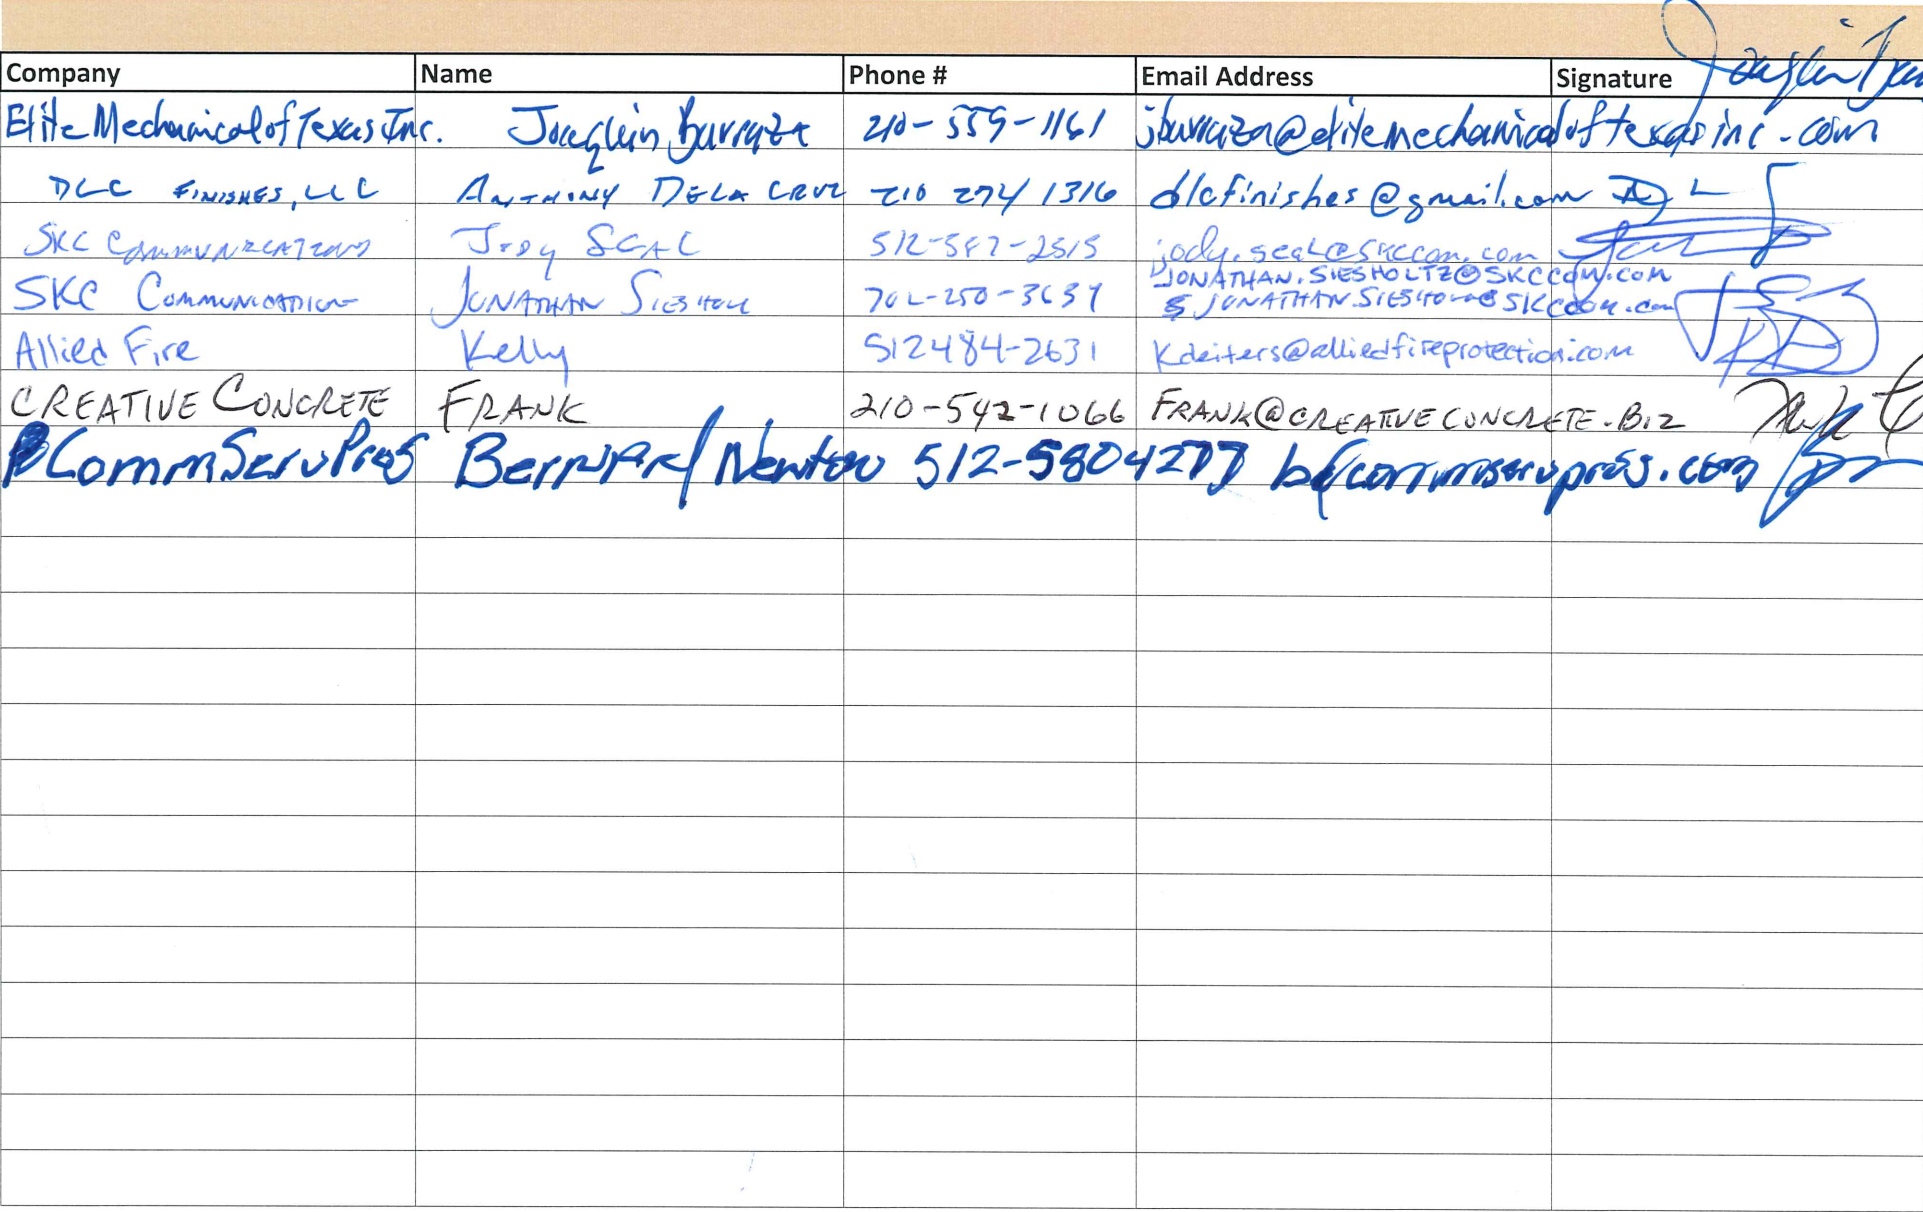 Company Name Phone # Email Address Signature
Elite Mechanical of Texas Inc. Joaquin Barraza 210-559-1161 jbarraza@elitemechanicaloftexasinc.com
DLC FINISHES, LLC ANTHONY DELA CRUZ 210 274 1316 dlcfinishes@gmail.com
SKC COMMUNICATIONS JODY SEAL 512-587-2515 jody.seal@skccom.com
SKC COMMUNICATION JONATHAN 702-250-3637 JONATHAN.SIESHOLTZ@SKCCOM.COM
Allied Fire Kelly 512484-2631 Kdeiters@alliedfireprotection.com
CREATIVE CONCRETE FRANK 210-542-1066 FRANK@CREATIVECONCRETE.BIZ
CommServPros Bernard Newton 512-5804277